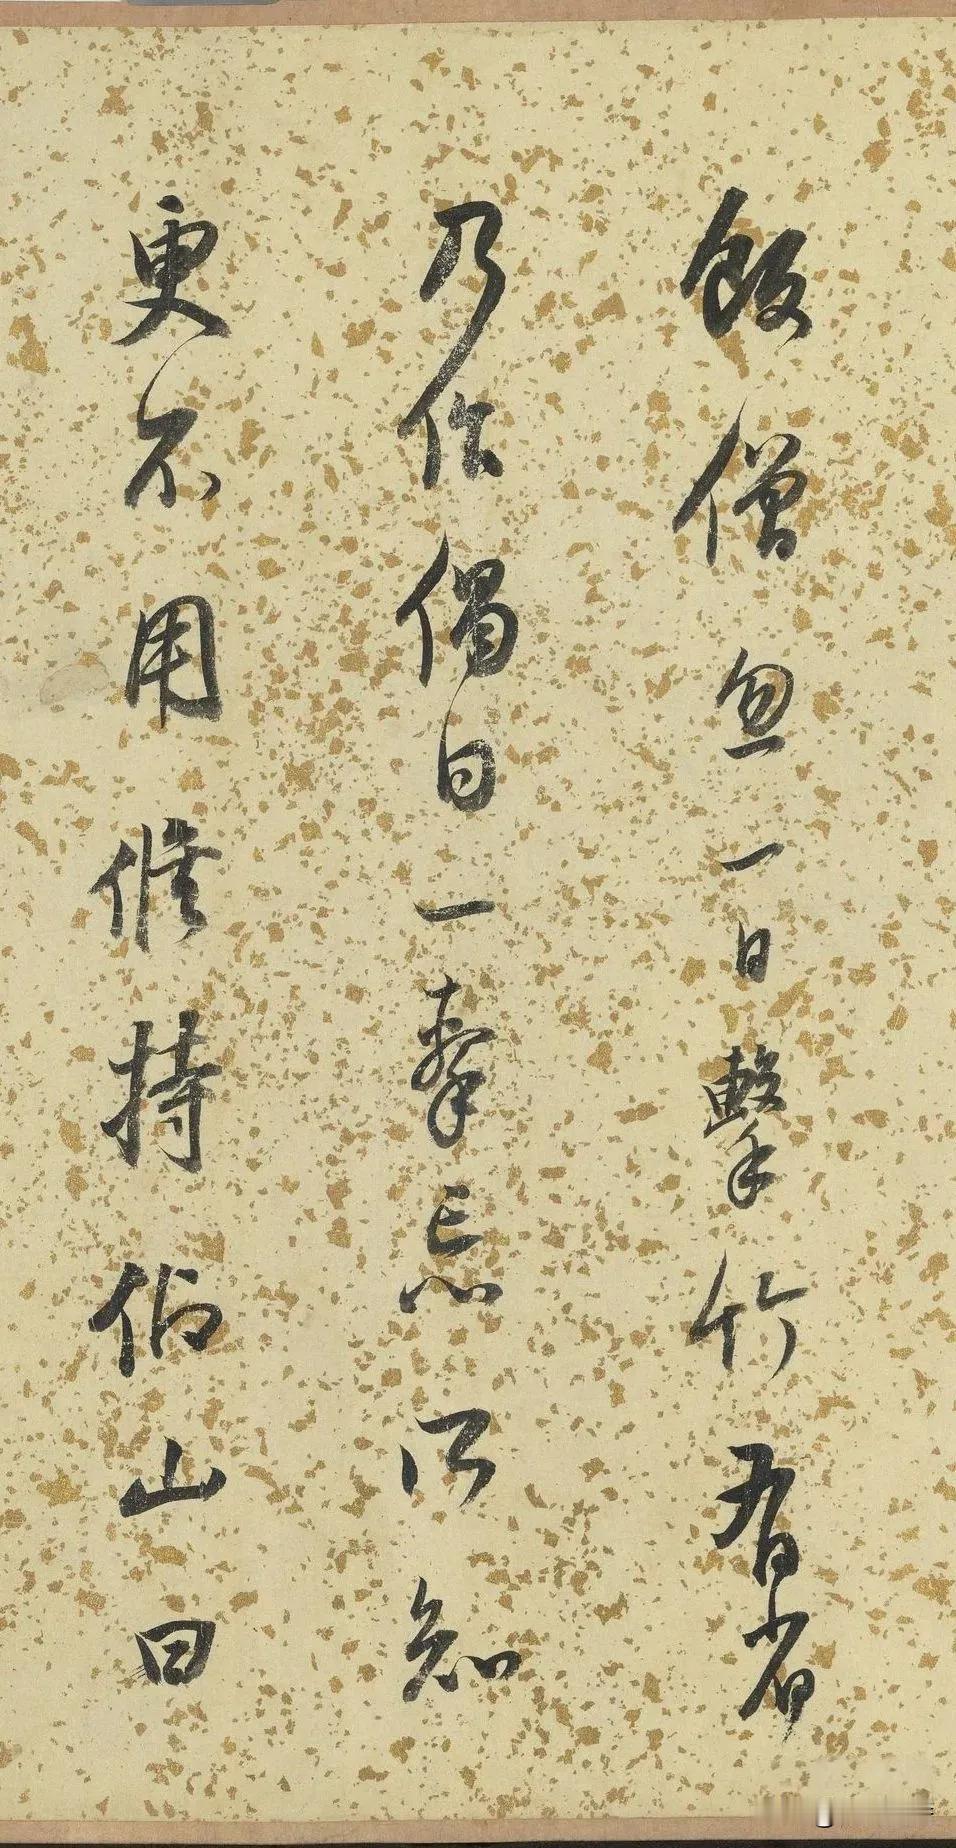 飯僧忽一日擊竹有省
乃作偈曰一擊忘所知
更不用修持仰山曰